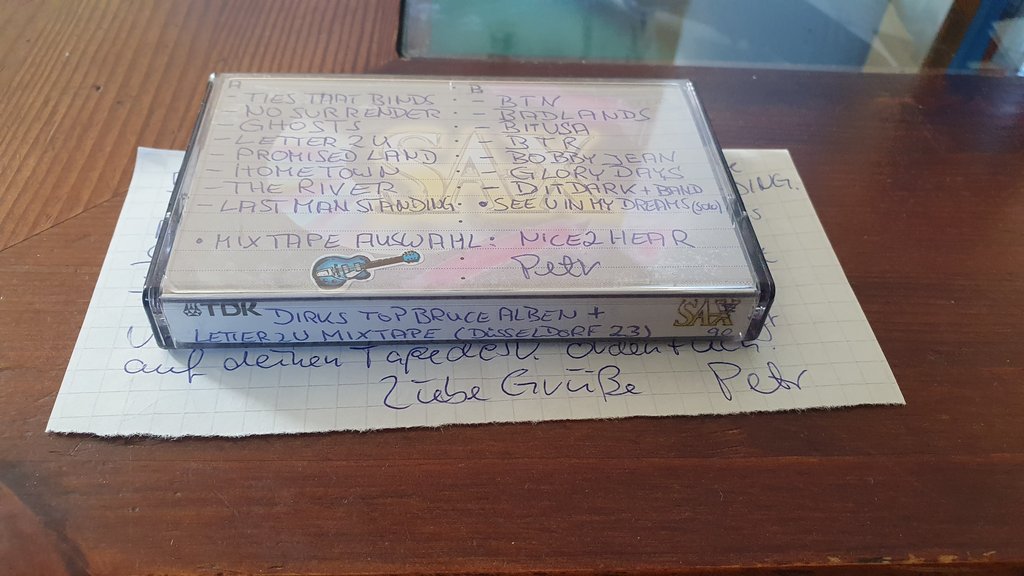 A
- TIES THAT BINDS
- NO SURRENDER
- GHOSTS
- LETTER 2 U
- PROMISED LAND
- HOMETOWN
- THE RIVER
- LAST MAN STANDING
B
- BTN
- BADLANDS
- BITUSA
- BTR
- BOBBY JEAN
- GLORY DAYS
- DITDARK + BAND
• SEE U IN MY DREAMS (solo)
• MIXTAPE AUSWAHL: NICE2HEAR
Petr
TDK DIRKS TOP BRUCE ALBEN +
LETTER 2U MIXTAPE (DÜSSELDORF 23)
SA-X 90
auf deinen Tapedesk. ordentlich.
Liebe Grüße Petr